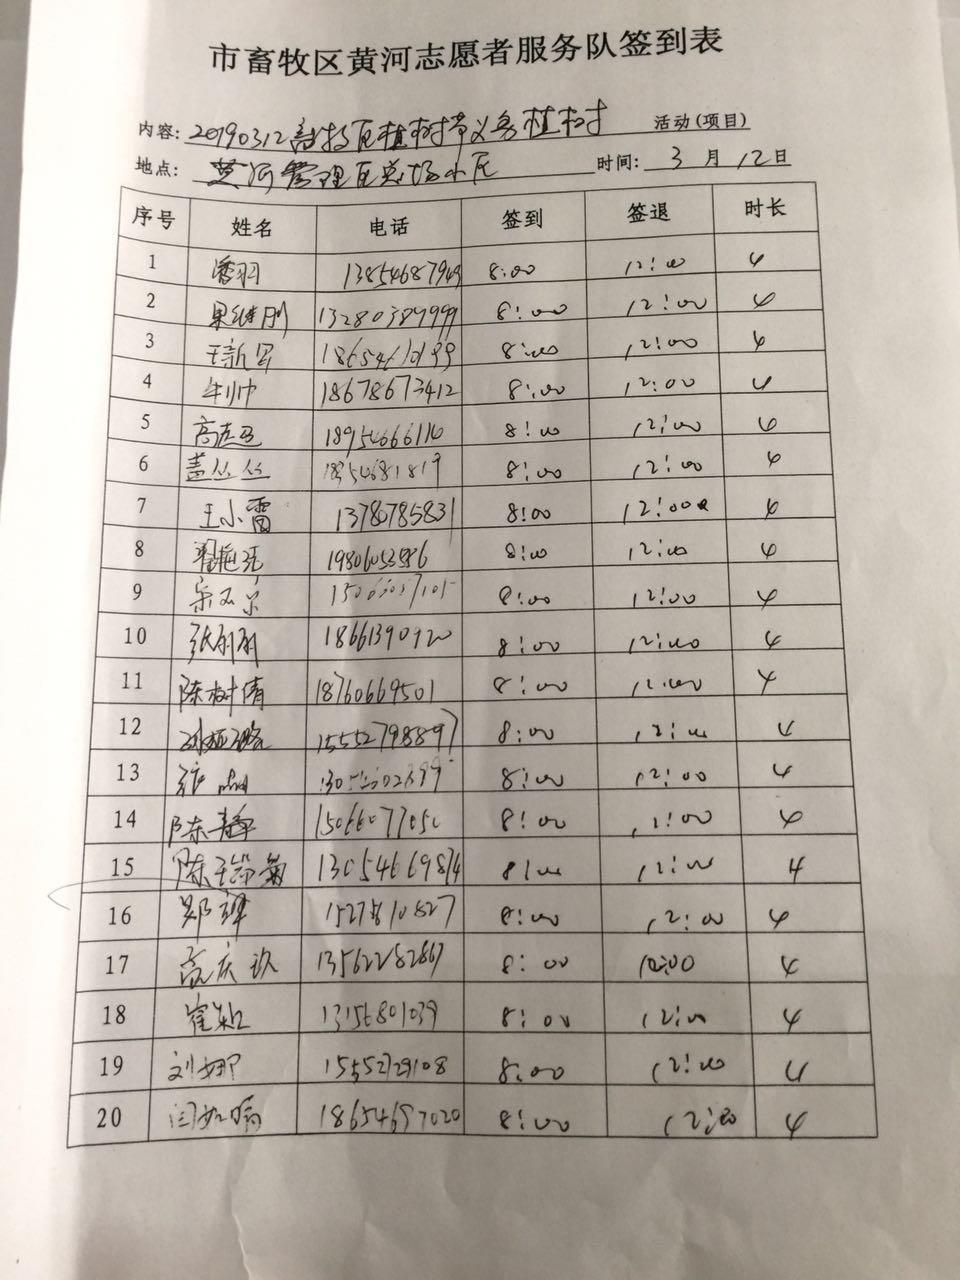 市畜牧区黄河志愿者服务队签到表
内容: 20190312畜牧区植树节义务植树 活动(项目)
地点: 黄河管理区总场小区 时间: 3 月 12 日
序号 姓名 电话 签到 签退 时长
1 潘羽 8:00 12:00 4
2 13280389999 8:00 12:00 4
3 王新军 8:00 12:00 4
4 牛帅 18678673412 8:00 12:00 4
5 18954666116 8:00 12:00 4
6 盖丛丛 18954681819 8:00 12:00 4
7 王小雷 13780785831 8:00 12:00 4
8 8:00 12:00 4
9 8:00 12:00 4
10 张丽丽 18661390920 8:00 12:00 4
11 陈树倩 18760669501 8:00 12:00 4
12 15552798897 8:00 12:00 4
13 8:00 12:00 4
14 陈静 15066077050 8:00 12:00 4
15 13054669874 8:00 12:00 4
16 郑 15275810827 8:00 12:00 4
17 高庆 13562282867 8:00 12:00 4
18 崔 13156801039 8:00 12:00 4
19 刘娜 15552729108 8:00 12:00 4
20 闫如 18654697020 8:00 12:00 4